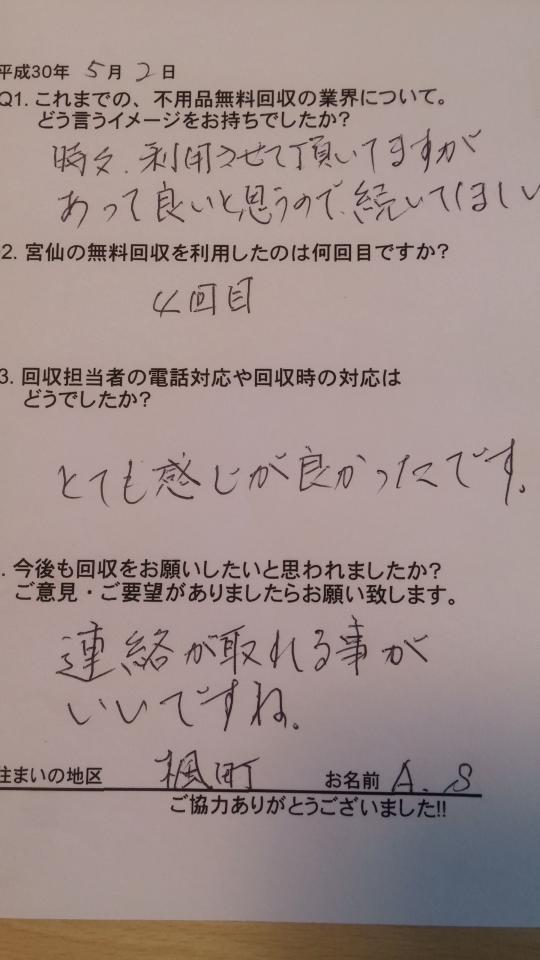 平成30年 5月 2日
Q1. これまでの、不用品無料回収の業界について。
どう言うイメージをお持ちでしたか?
時々、利用させて頂いてますが
あって良いと思うので、続いてほしい
2. 宮仙の無料回収を利用したのは何回目ですか?
4回目
3. 回収担当者の電話対応や回収時の対応は
どうでしたか?
とても感じが良かったです。
. 今後も回収をお願いしたいと思われましたか?
ご意見・ご要望がありましたらお願い致します。
連絡が取れる事が
いいですね。
住まいの地区 楓町 お名前 A. S
ご協力ありがとうございました!!